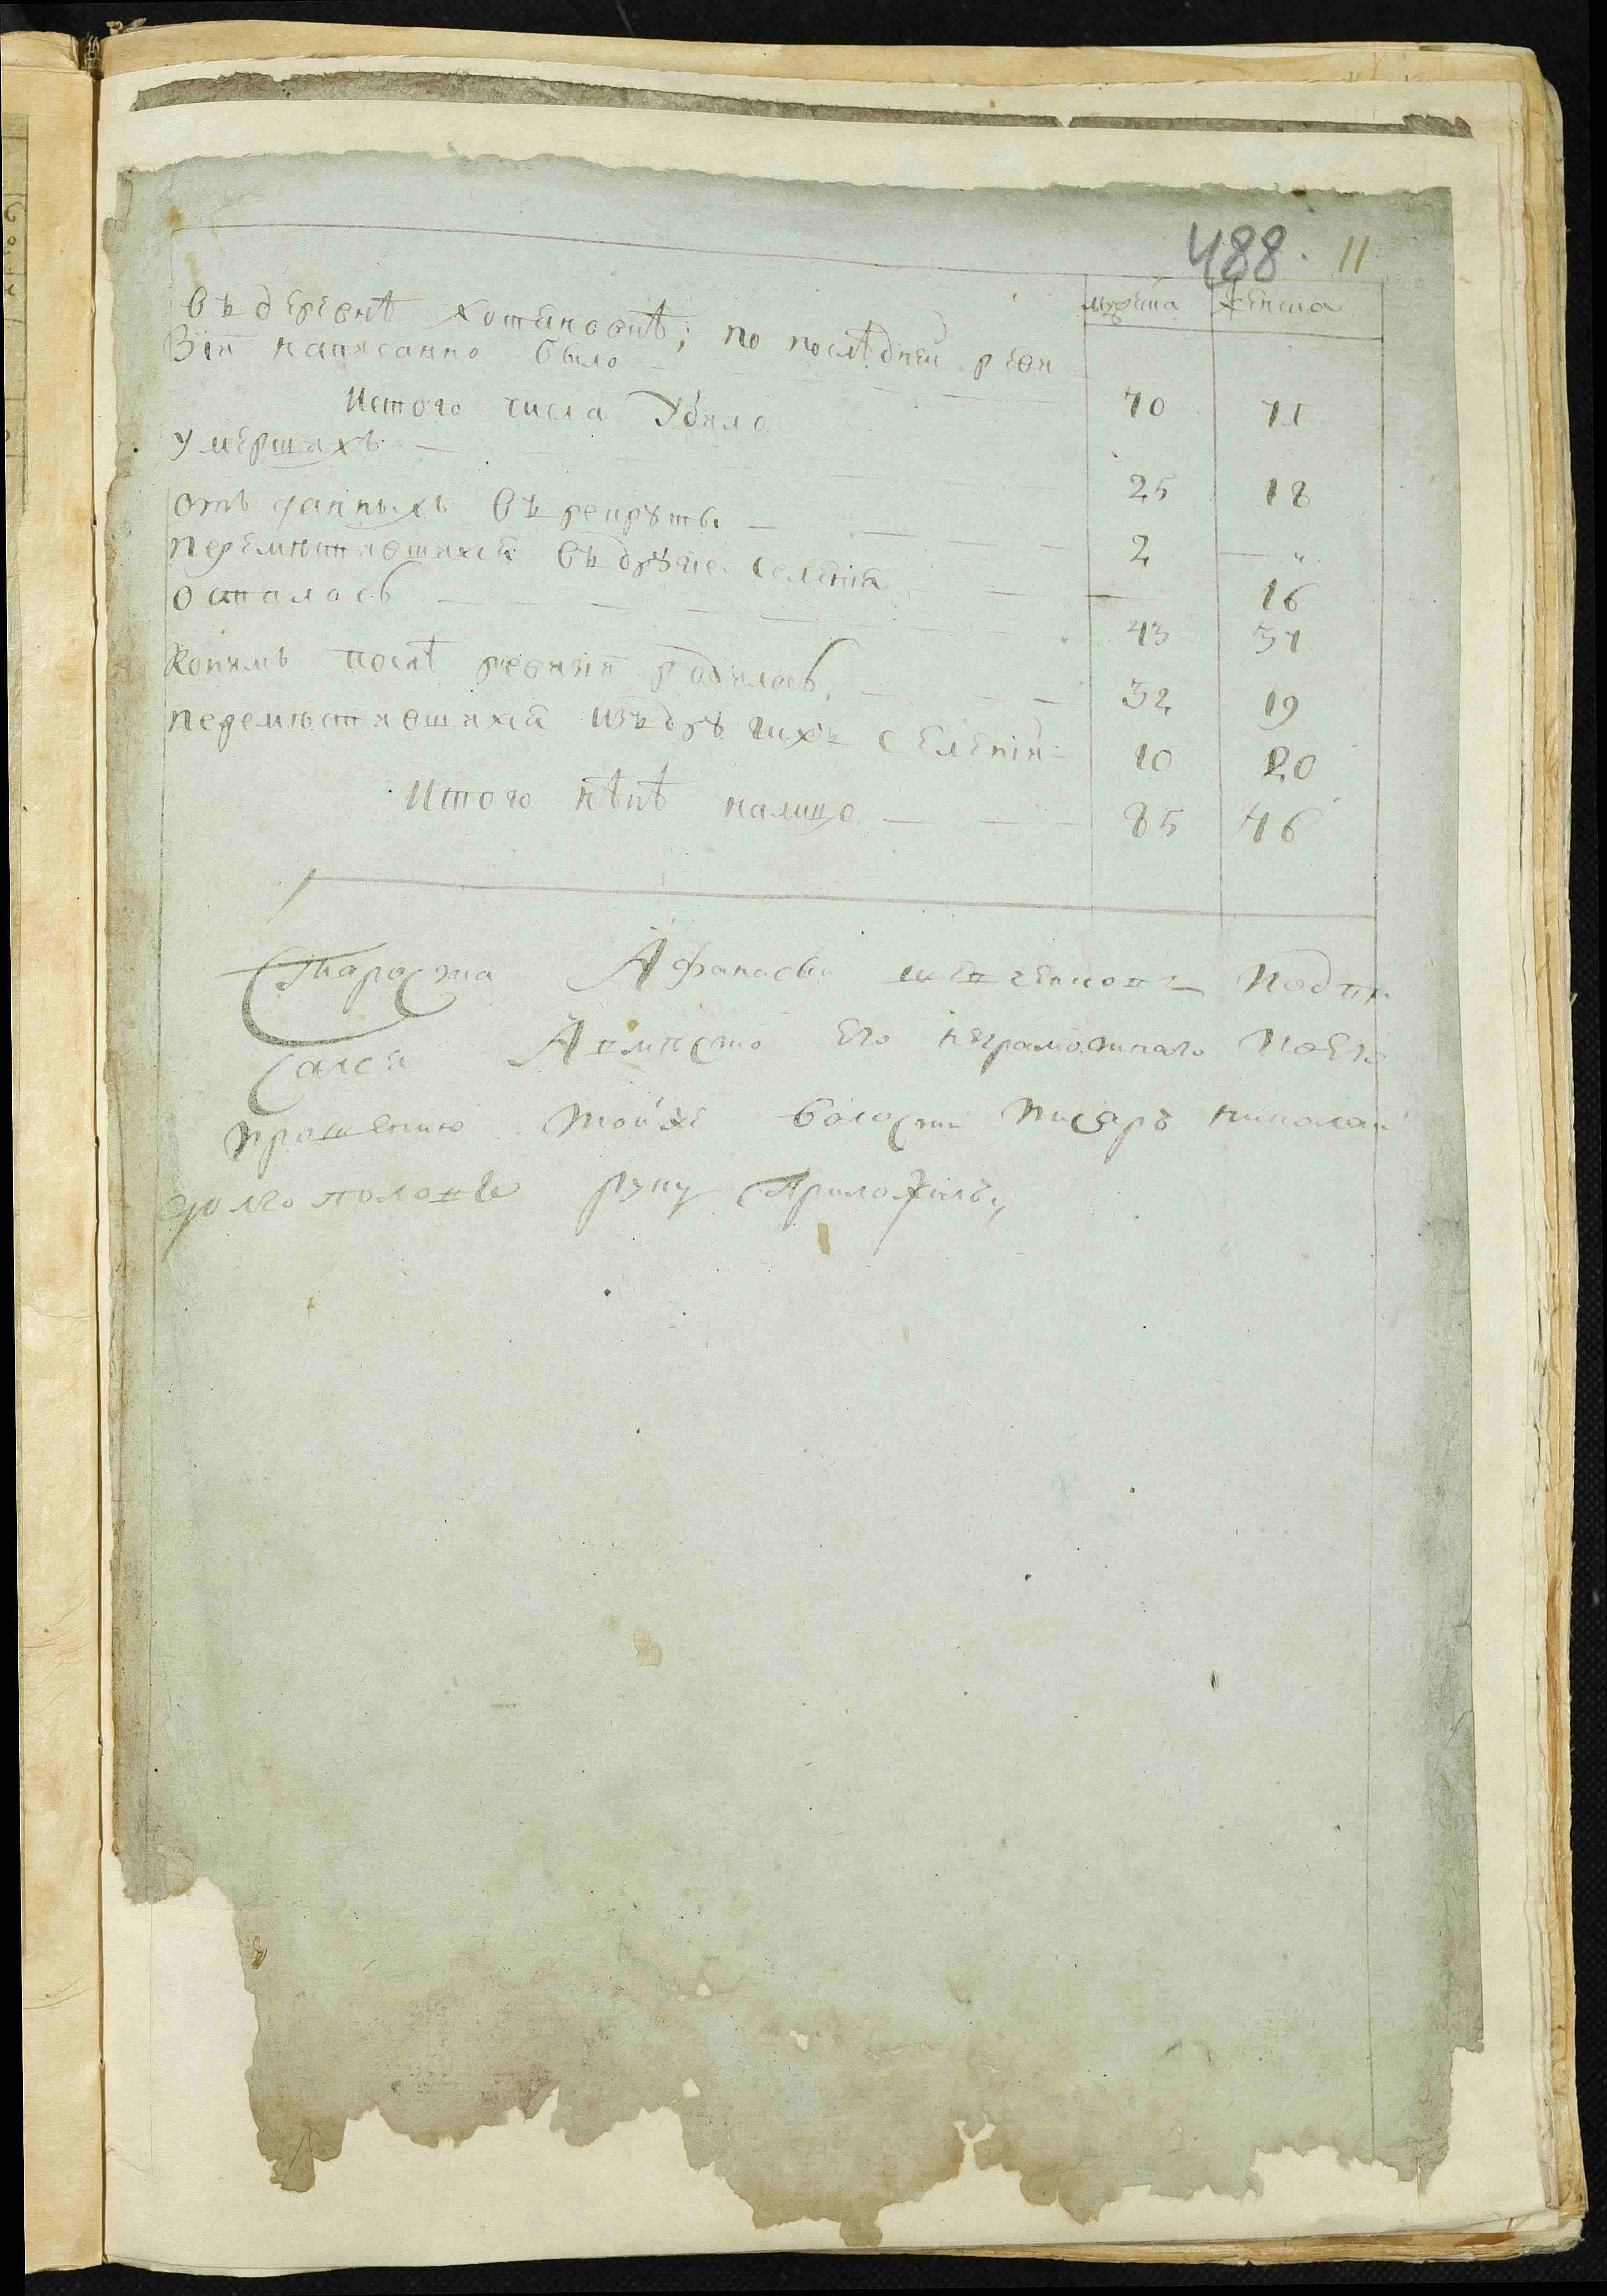 488. 11
мужеска женска
Въ деревнѣ Хотановѣ; по послѣдней реви
зіи написанно было 70 71
Истого числа Убило
умершихъ 25 18
отъданныхъ Въ рекруты 2 — "
переместившихся Въ другие селенія — 16
осталось 43 37
Коимъ послѣ ревизіи родилось 32 19
переместившихся изъ другихъ селеній 10 20
Итого нѣнѣ налицо 85 46
Староста Афанасъ Подпи
сался Авместо Его неграмотнаго ПоЕго
прошению той же Волости писарь николай
руку Приложилъ,